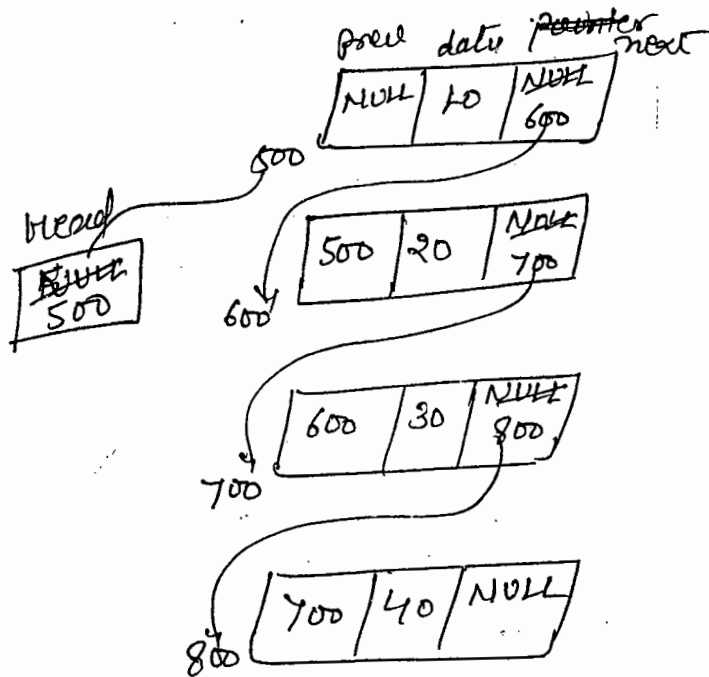 prev data pointer next
NULL 10 NULL
600
500
head
NULL
500
500 20 NULL
700
600
600 30 NULL
800
700
700 40 NULL
800